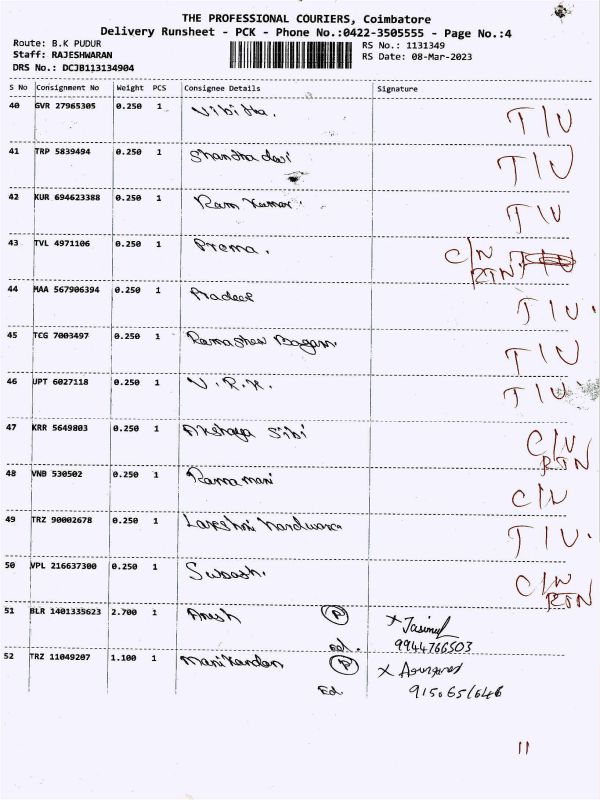 THE PROFESSIONAL COURIERS, Coimbatore
Delivery Runsheet - PCK - Phone No.:0422-3505555 - Page No.:4
Route: B.K PUDUR RS No.: 1131349
Staff: RAJESHWARAN RS Date: 08-Mar-2023
DRS No.: DCJB113134904
S No Consignment No Weight PCS Consignee Details Signature
40 GVR 27965305 0.250 1 Nibitha. T/U
41 TRP 5839494 0.250 1 Shandha devi T/U
42 KUR 694623388 0.250 1 Ram Kumar. T/U
43 TVL 4971106 0.250 1 Prema. C/N
RTN
44 MAA 567906394 0.250 1 Pradeep T/U.
45 TCG 7003497 0.250 1 T/U
46 UPT 6027118 0.250 1 V.R.K. T/U
47 KRR 5649803 0.250 1 Akshaya Sibi C/N
RTN
48 VNB 530502 0.250 1 Ramamani C/N
49 TRZ 90002678 0.250 1 Lakshmi hardware T/U.
50 VPL 216637300 0.250 1 C/N
RTN
51 BLR 1401335623 2.700 1 P x
9944766503
52 TRZ 11049207 1.100 1 Manikandan P x
11